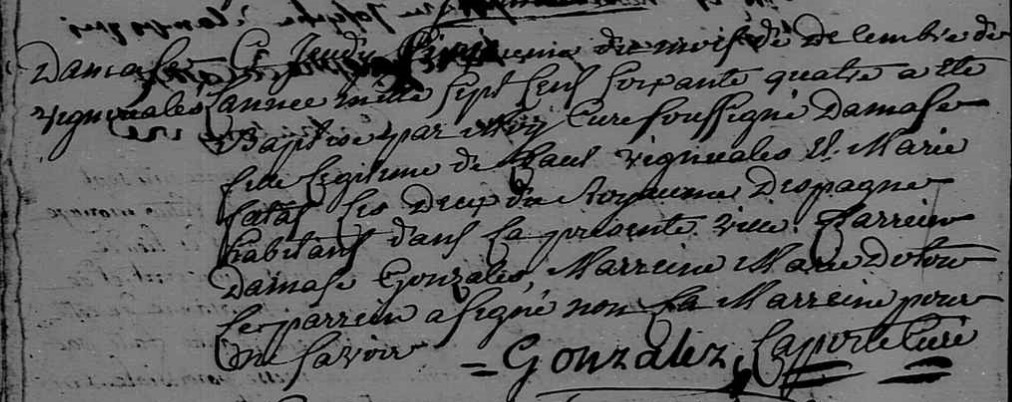 Damase Ce Jeudy du mois de Decembre de
vigneuales Lannee mille sept cens soixante quatre a ete
Baptise par Moy Cure soussigné Damase
fils Legitime de Paul vigneuales Et Marie
Catas Les Deux du Royaume Despagne
habitans dans La presente ville. Parrein
Damase Gonzales, Marreine Marie
Le parrein a signé non La Marreine pour
ne savoir = Gonzalez, Laporte Curé